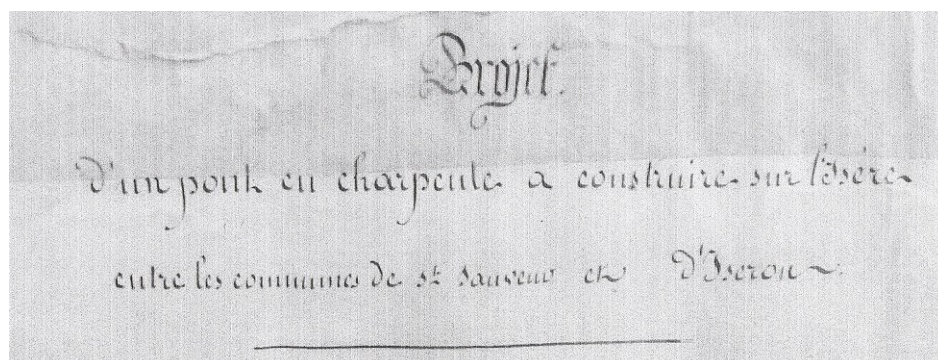 Projet.
d'un pont en charpente a construire sur l'Isère
entre les communes de st Sauveur et d'Iseron